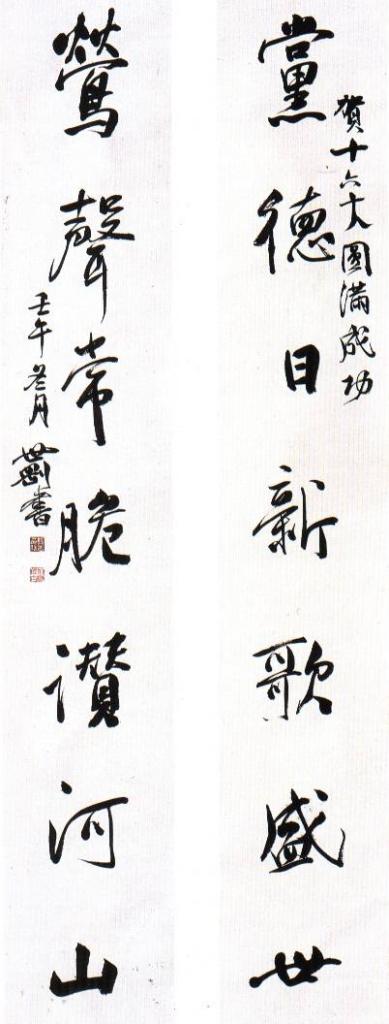 賀十六大圓滿成功
黨德日新歌盛世
鶯聲常脆讚河山
壬午冬月
書